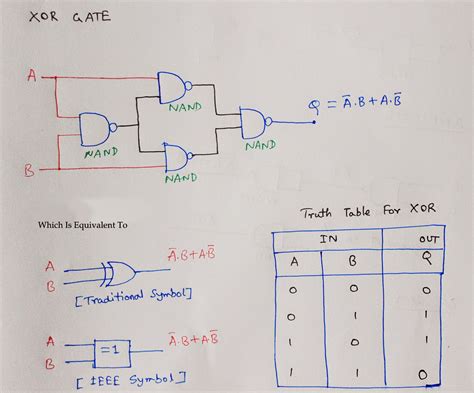 XOR GATE
A
NAND
NAND
Q = A̅.B + A.B̅
NAND
B
NAND
Which Is Equivalent To
A
B
A̅.B+AB̅
[Traditional Symbol]
A
B
=1
A̅.B+AB̅
[IEEE Symbol]
Truth Table For XOR
IN OUT
A B Q
0 0 0
0 1 1
1 0 1
1 1 0